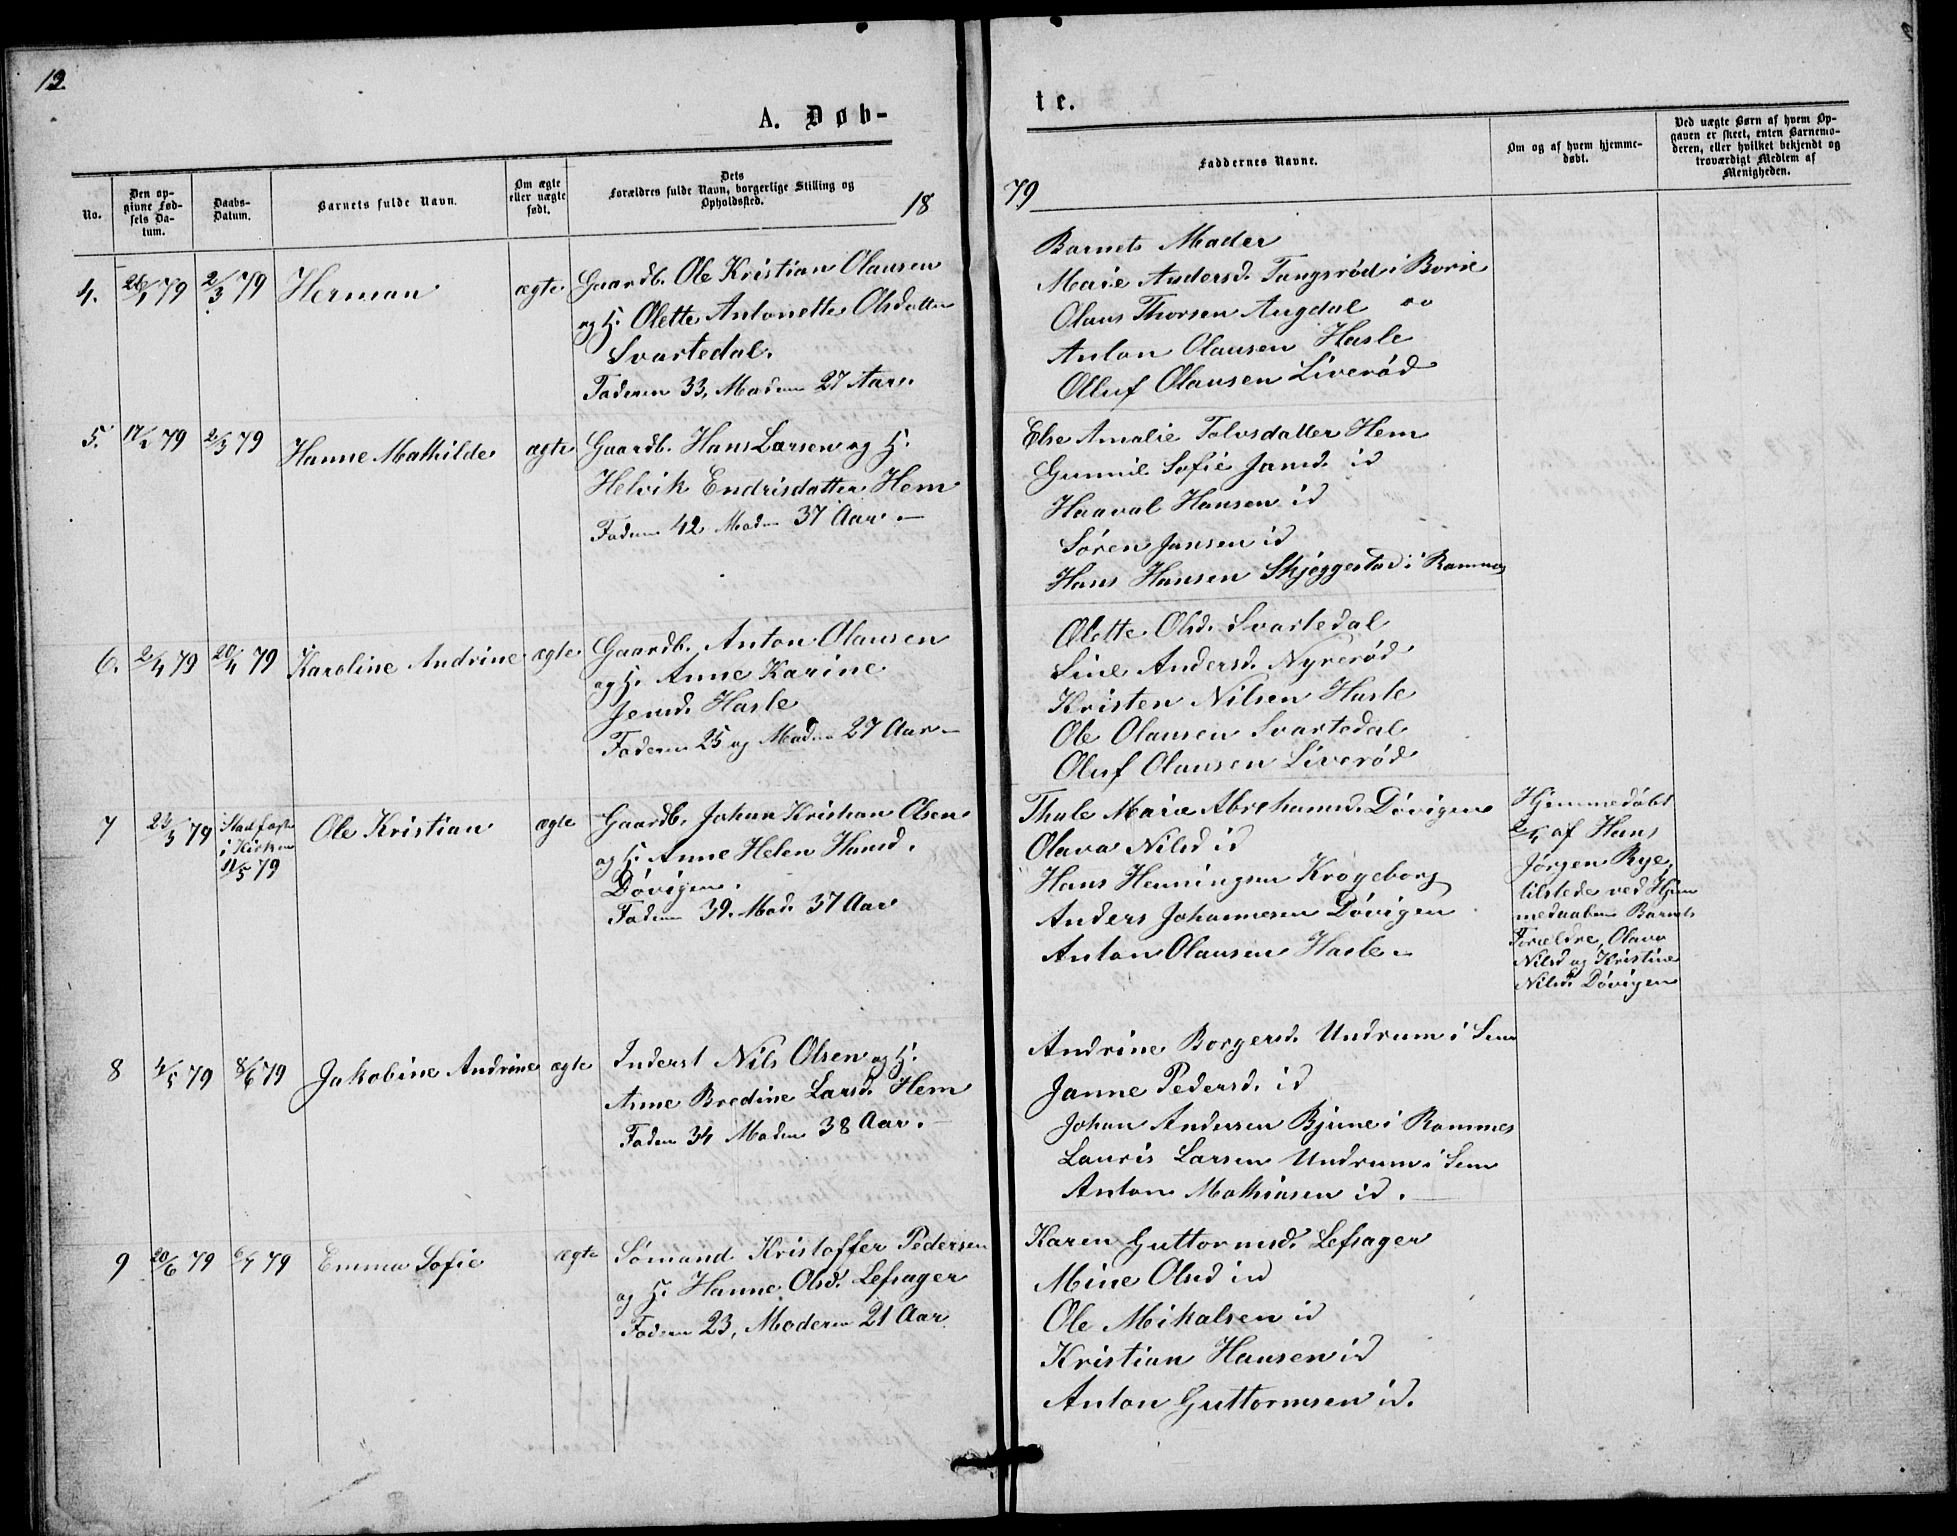 12.
A. Døb-
te.
No.
Den op-
givne Fød-
sels Da-
tum.
Daabs-
Datum.
Barnets fulde Navn.
Om ægte
eller uægte
født.
Dets
Forældres fulde Navn, borgerlige Stilling og
Opholdssted.
18
79
Faddernes Navne.
Om og af hvem hjemme-
døbt.
Ved uægte Børn af hvem Op-
gaven er skeet, enten Barnemo-
deren, eller hvilket bekjendt og
troværdigt Medlem af
Menigheden.
4. 26/1 79 2/3 79 Herman ægte
Gaardb. Ole Kristian Olausen
og H. Olette Antonette Olsdatter
Svartedal.
Faderen 33, Moderen 27 Aar.
Barnets Moder
Marie Andersd. Tangsrød i Borre
Olaus Thorsen Augdal
Anton Olausen Hasle
Olluf Olausen Liverød
5. 17/2 79 2/3 79 Hanne Mathilde ægte
Gaardb. Hans Larsen og H.
Helvik Endrisdatter Hem
Faderen 42 Moderen 37 Aar.
Else Amalie Tolvsdatter Hem
Gunnil Sofie Jansd. id
Haaval Hansen id
Søren Jansen id
Hans Hansen Skjeggestad i Ramnes
6. 2/4 79 20/4 79 Karoline Andrine ægte
Gaardb. Anton Olausen
og H. Anne Karine
Jensd. Hasle
Faderen 25 og Moderen 27 Aar
Olette Olsd. Svartedal
Line Andersd. Nyrerød
Kristen Nilsen Hasle
Ole Olausen Svartedal
Oluf Olausen Liverød
7 /3 79 Stadfæst
i Kirken
11/5 79
Ole Kristian ægte
Gaardb. Johan Kristian Olsen
og H. Anne Helen Hansd.
Døvigen.
Faderen 39. Mod. 37 Aar
Thale Marie Abrahamsd. Døvigen
Olava Nilsd id
Hans Henningsen Krogeborg
Anders Johannesen Døvigen
Anton Olausen Hasle
Hjemmedøbt
2/4 af Hans
Jørgen Rye,
tilstede ved Hjem
medaaben Barnets
Forældre, Olava
Nilsd og Kristine
Nilsd. Døvigen
8 4/5 79 8/6 79 Jakobine Andrine ægte
Inderst Nils Olsen og H.
Anne Bredine Larsd. Hem
Faderen 34 Moderen 38 Aar.
Andrine Borgersd. Undrum i Sem
Janne Pedersd. id
Johan Andersen Bjune i Ramnes
Lauris Larsen Undrum i Sem
Anton Mathiasen id.
9 20/6 79 6/7 79 Emma Sofie ægte
Sømand Kristoffer Pedersen
og H. Hanne Olsd. Lefsager
Faderen 23, Moderen 21 Aar
Karen Guttormsd. Lefsager
Mine Olsd id
Ole Mikalsen id
Kristian Hansen id
Anton Guttormsen id.